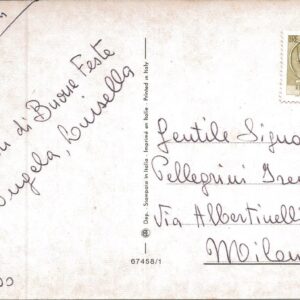 di Buone Feste
Angela, Luisella
Dep. Stampato in Italia - Imprimé en Italie - Printed in Italy
67458/1
Gentile Signo
Pellegrini Iren
Via Albertinelli
Milan